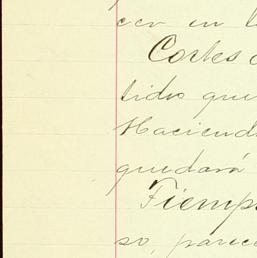 cer en l
Cortes
tido que
Haciend
quedará
Tiemp
so, parec